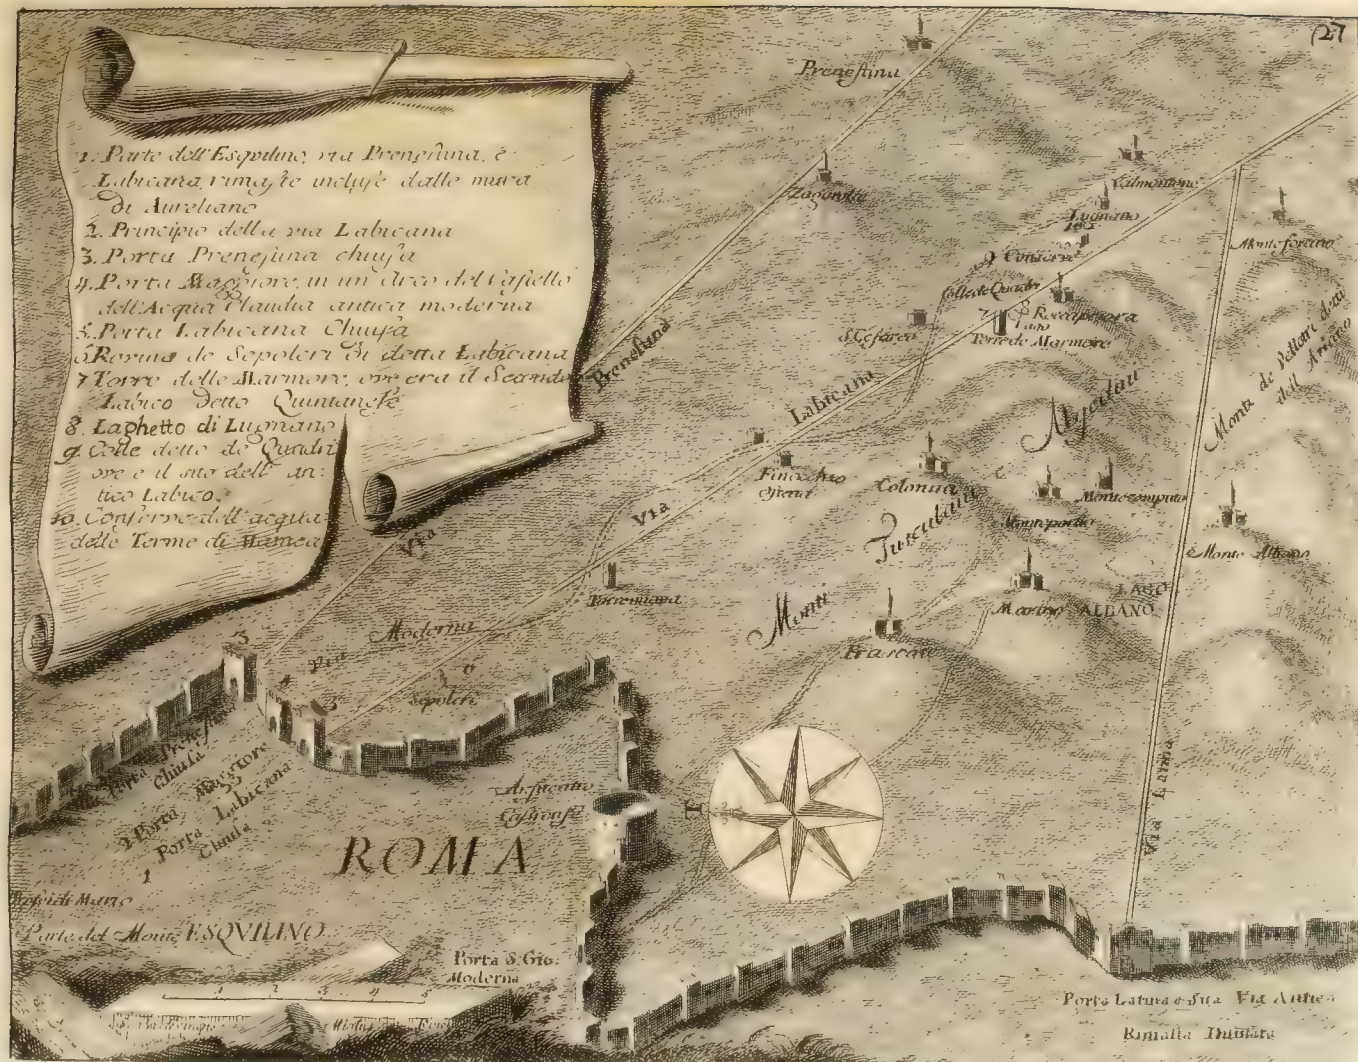 (27
1. Parte dell'Esquilino, via Prenestina, è
Labicana, rimaste incluse dalle mura
di Aureliano
2. Principio della via Labicana
3. Porta Prenestina chiusa
4. Porta Maggiore, in un Arco del Castello
dell'Acqua Claudia antica moderna
5. Porta Labicana Chiusa
6 Rovine de Sepolcri di detta Labicana
7 Torre delle Marmore, ove era il Secondo
Labico detto Quintanese
8. Laghetto di Lugnano
9. Colle detto de Quadri
ove è il sito dell' an-
tico Labico.
10. Conserve dell'acqua
delle Terme di
Prenestina
Zagarolo
Valmontone
Lugnano
Conserve
Montefortino
Colle de Quadri
7
8
Lago
Roccapriora
Torre de Marmore
S. Cesareo
Via Prenestina
Via Labicana
Monti de Pettori
dell Ariano
Algidau
Finocchio
Osteria
Colonna
Montecompato
Monteporzio
Monti Tusculani
Monte Albano
LAGO
ALBANO
Marino
Frascati
Torrenuova
Via Moderna
6
Sepolcri
3
4
5
Porta Prenestina
Chiusa
2 Porta Maggiore
Porta Labicana
Chiusa
1
Anfiteatro
Castrense
ROMA
Trofei di Mario
Parte del Monte ESQVILINO
Porta S. Gio.
Moderna
Via Latina
1 2 3 4 5
Porta Latina e sua Via Antica
Rimasta